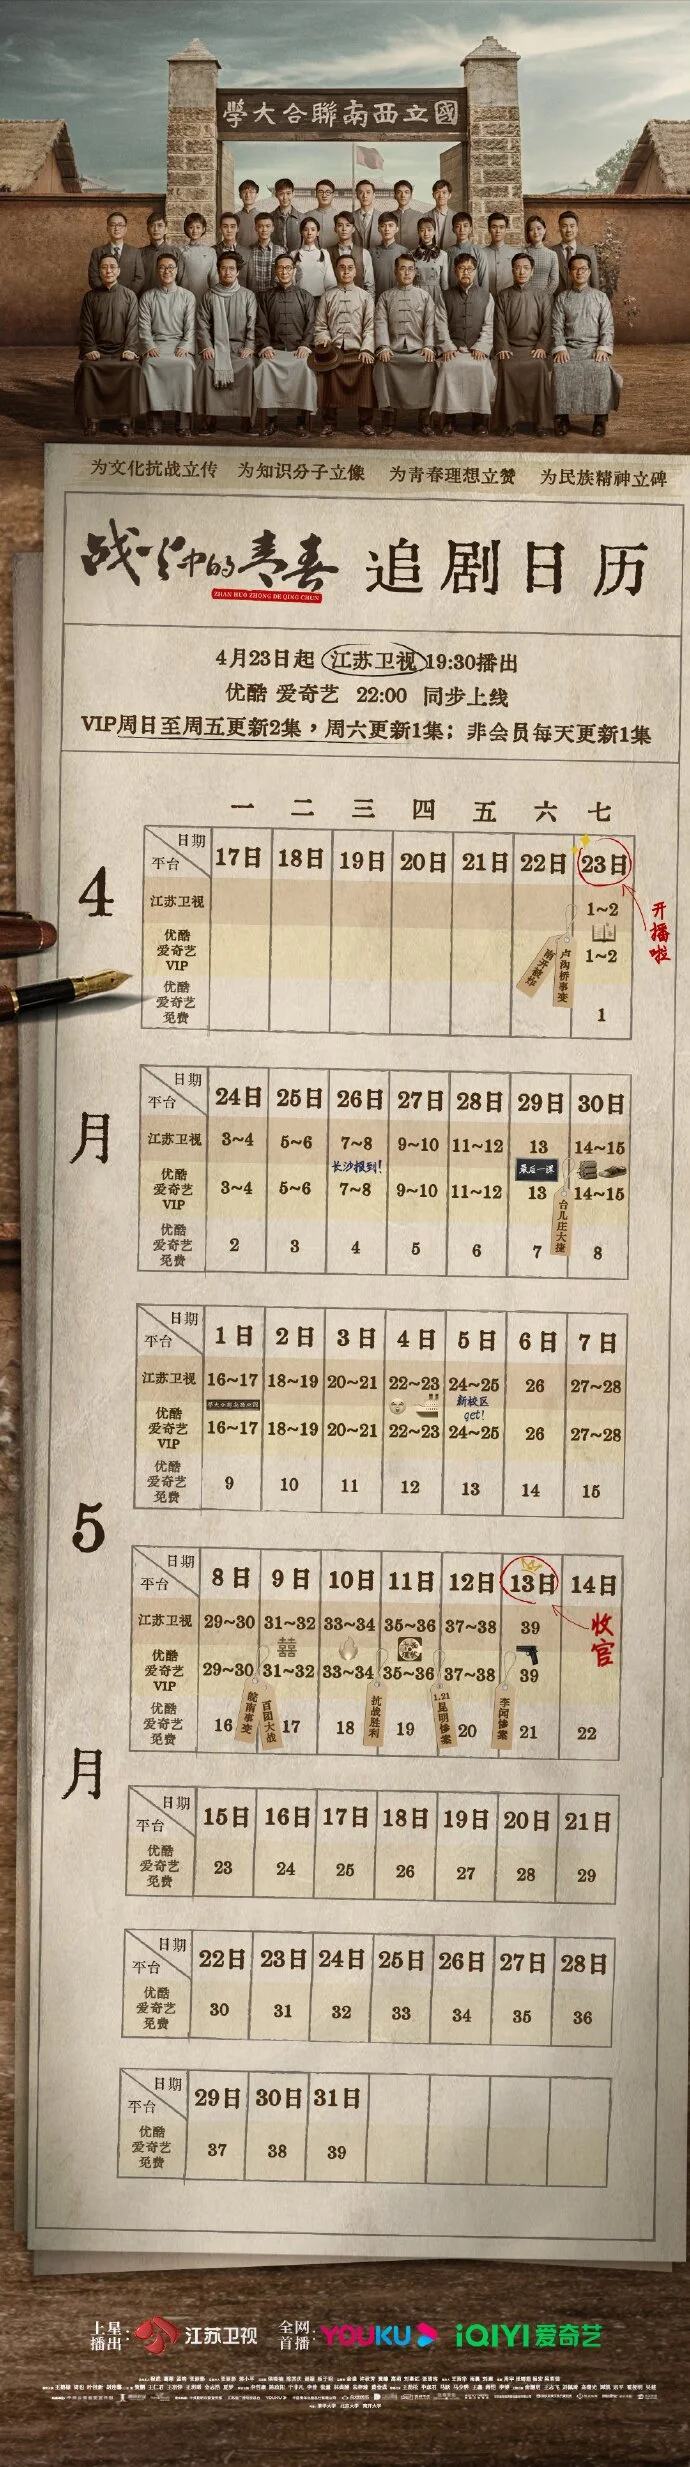 學大合聯南西立國
为文化抗战立传 为知识分子立像 为青春理想立赞 为民族精神立碑
战火中的青春 追剧日历
ZHAN HUO ZHONG DE QING CHUN
4月23日起 江苏卫视 19:30播出
优酷 爱奇艺 22:00 同步上线
VIP周日至周五更新2集，周六更新1集；非会员每天更新1集
一 二 三 四 五 六 七
4月
日期 平台 17日 18日 19日 20日 21日 22日 23日
开播啦
江苏卫视 1~2
优酷 爱奇艺 VIP 1~2
南开被炸 卢沟桥事变
优酷 爱奇艺 免费 1
日期 平台 24日 25日 26日 27日 28日 29日 30日
江苏卫视 3~4 5~6 7~8 9~10 11~12 13 14~15
长沙报到! 最后一课
优酷 爱奇艺 VIP 3~4 5~6 7~8 9~10 11~12 13 14~15
台儿庄大捷
优酷 爱奇艺 免费 2 3 4 5 6 7 8
5月
日期 平台 1日 2日 3日 4日 5日 6日 7日
江苏卫视 16~17 18~19 20~21 22~23 24~25 26 27~28
學大合聯南西立國
新校区
get!
优酷 爱奇艺 VIP 16~17 18~19 20~21 22~23 24~25 26 27~28
优酷 爱奇艺 免费 9 10 11 12 13 14 15
日期 平台 8日 9日 10日 11日 12日 13日 14日
收官
江苏卫视 29~30 31~32 33~34 35~36 37~38 39
囍
优酷 爱奇艺 VIP 29~30 31~32 33~34 35~36 37~38 39
皖南事变 百团大战 抗战胜利 1.21昆明惨案 李闻惨案
优酷 爱奇艺 免费 16 17 18 19 20 21 22
日期 平台 15日 16日 17日 18日 19日 20日 21日
优酷 爱奇艺 免费 23 24 25 26 27 28 29
日期 平台 22日 23日 24日 25日 26日 27日 28日
优酷 爱奇艺 免费 30 31 32 33 34 35 36
日期 平台 29日 30日 31日
优酷 爱奇艺 免费 37 38 39
上星播出: 江苏卫视 全网首播: YOUKU iQIYI 爱奇艺
清华大学 北京大学 南开大学